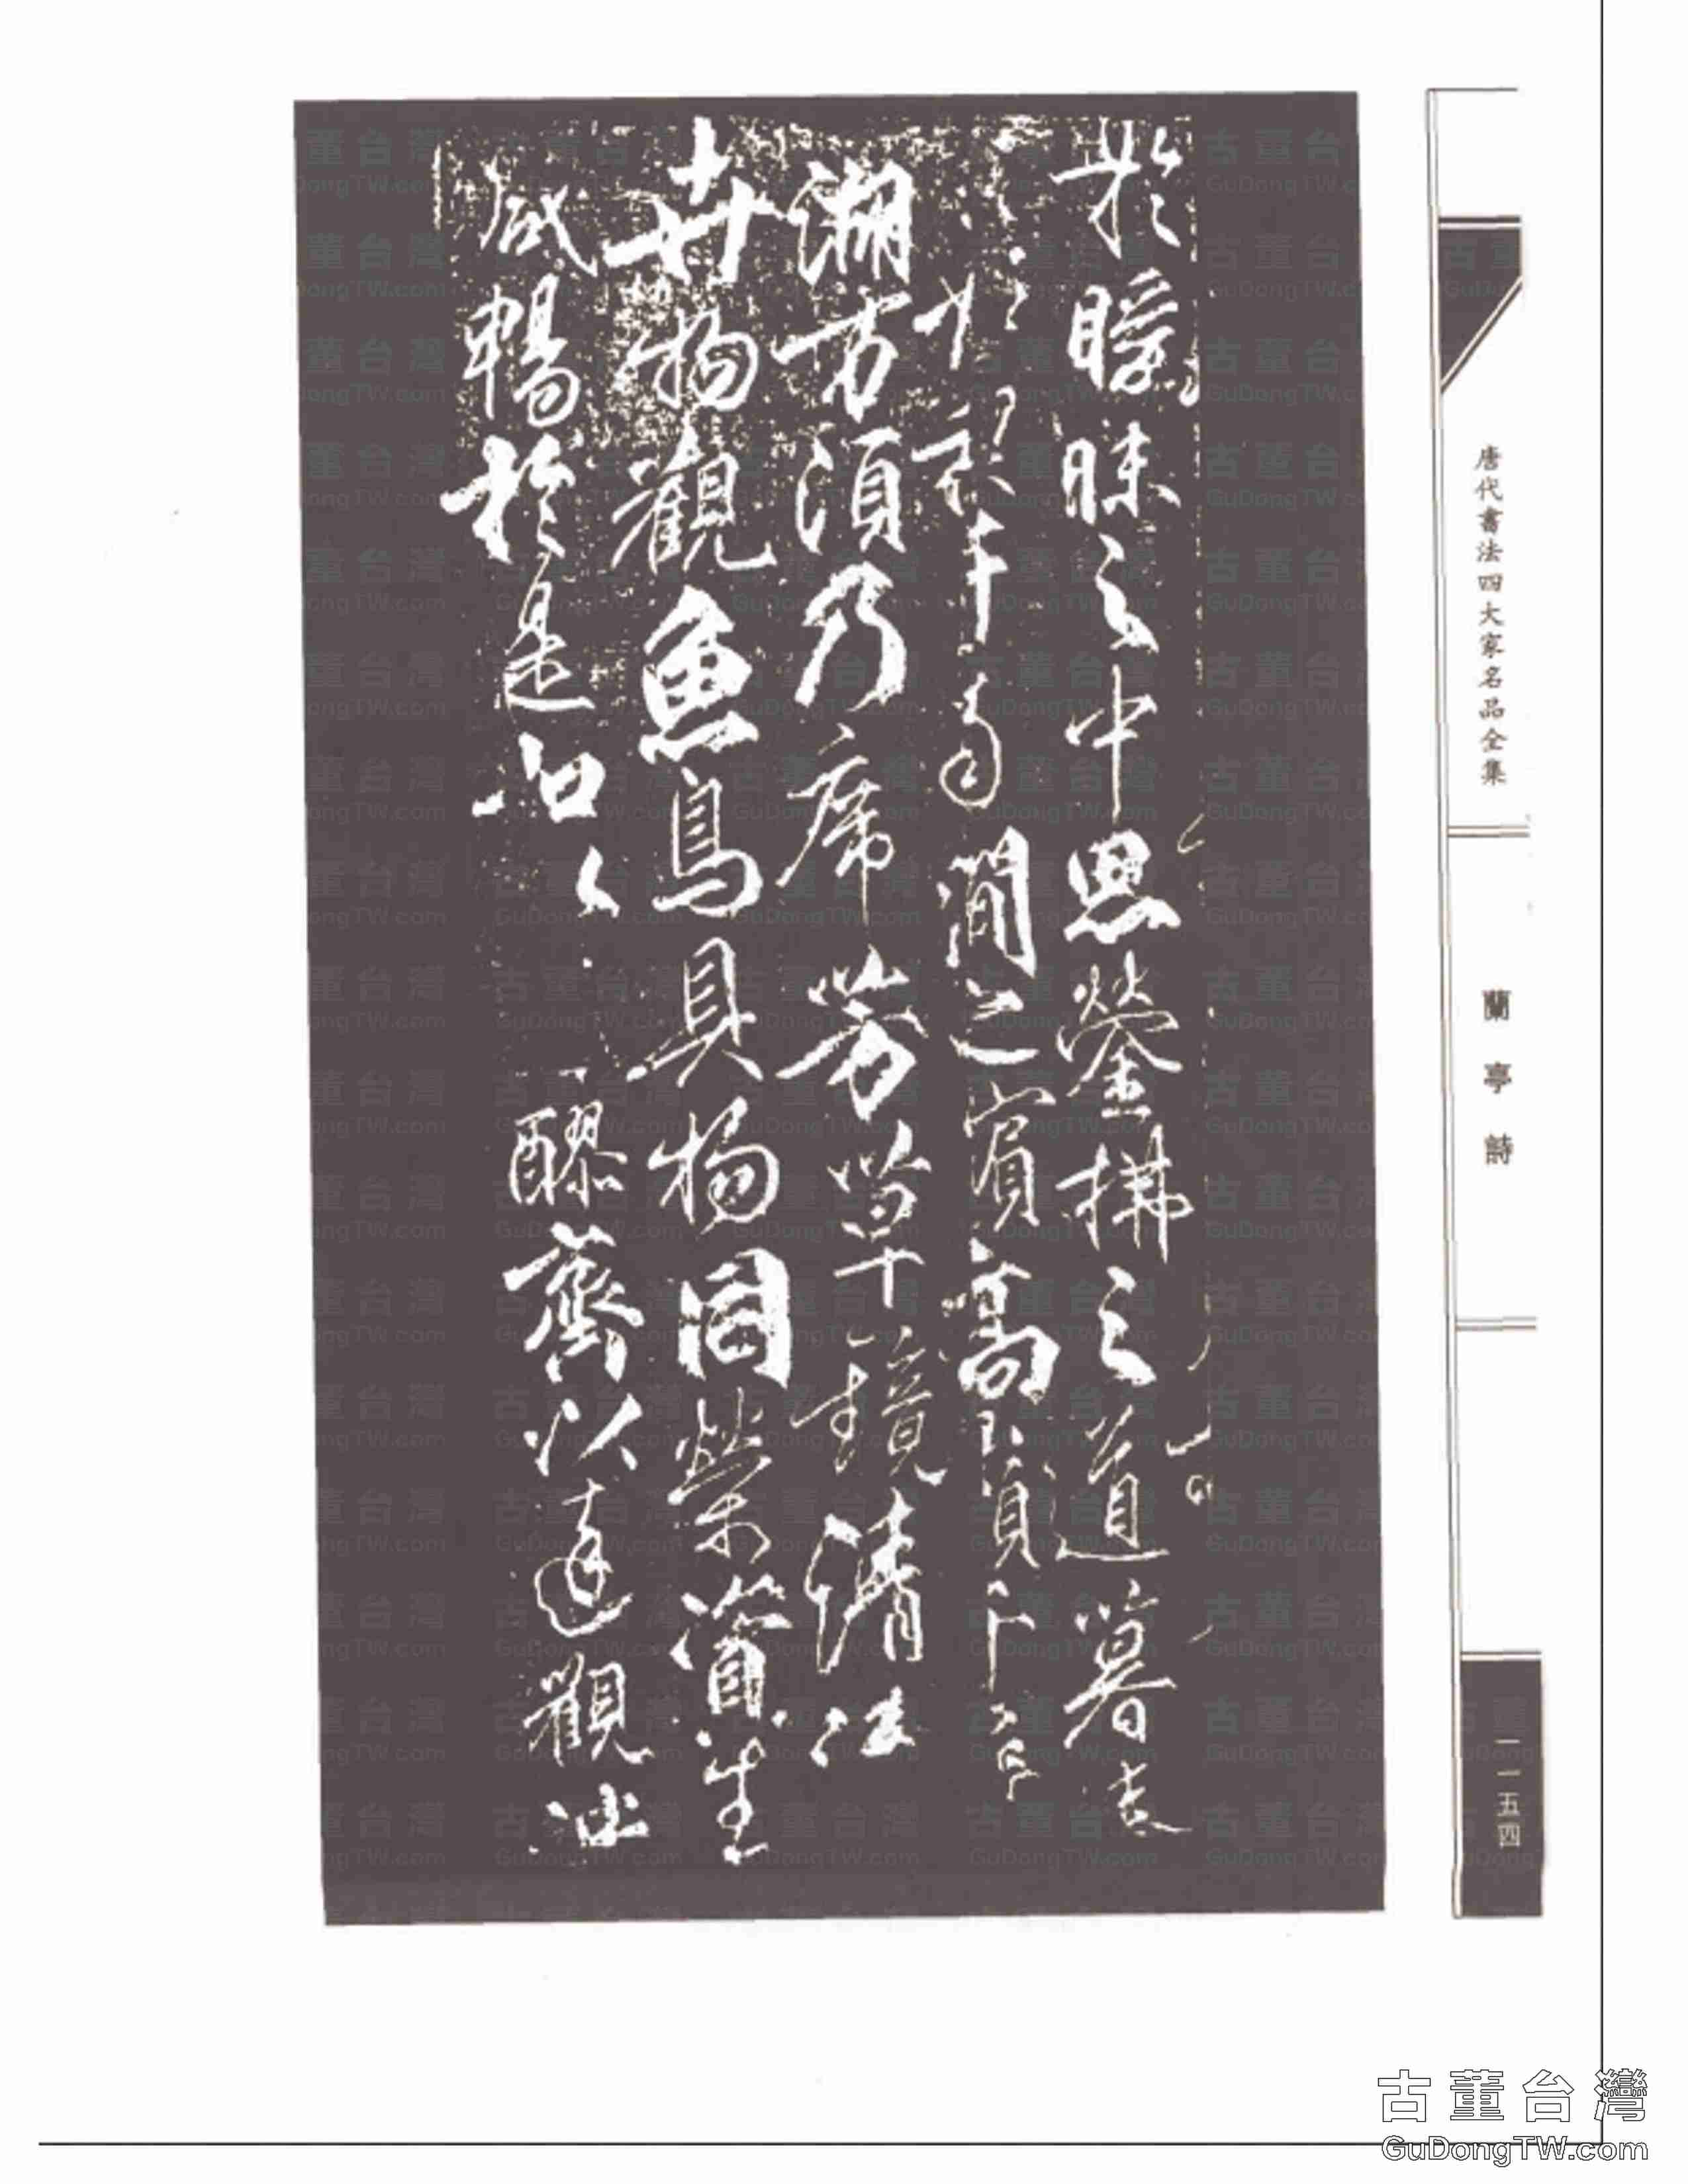 唐代書法四大家名品全集
蘭亭詩
一一五四
於曖昧之中思縈拂之道暮
禊于南澗之濱高嶺千尋
湖方須乃席芳草鏡清流
卉物觀魚鳥具物同榮資生
咸暢於是和以醪齊以達觀泱
古董台灣
GuDongTW.com